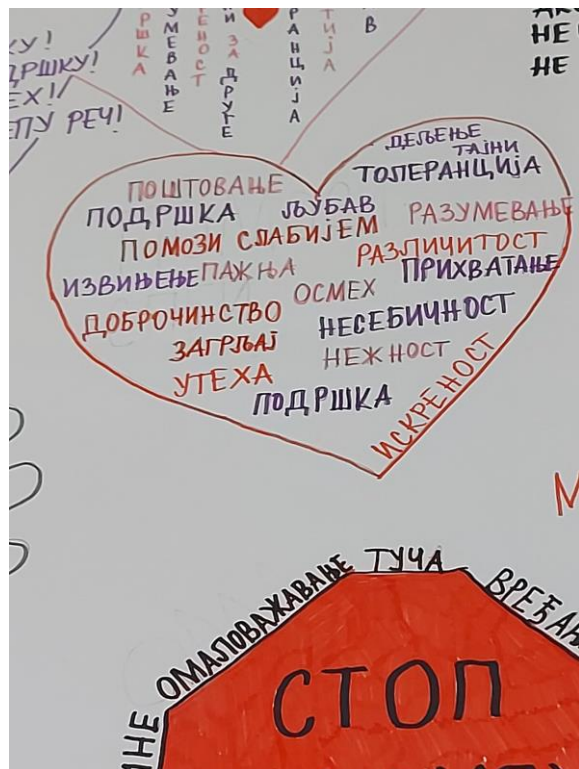 РШКА
УМЕВАЊЕ
ЕНОСТ
И ЗА ДРУГЕ
РАНЦИЈА
ТИЈА
В
НЕ
НЕ
КУ!
ДРШКУ!
ЕХ!
ЕПУ РЕЧ!
ДЕЉЕЊЕ
ТАЈНИ
ТОЛЕРАНЦИЈА
ПОШТОВАЊЕ
ПОДРШКА ЉУБАВ РАЗУМЕВАЊЕ
ПОМОЗИ СЛАБИЈЕМ РАЗЛИЧИТОСТ
ИЗВИЊЕЊЕ ПАЖЊА ПРИХВАТАЊЕ
ДОБРОЧИНСТВО ОСМЕХ НЕСЕБИЧНОСТ
ЗАГРЉАЈ НЕЖНОСТ
УТЕХА
ПОДРШКА
ИСКРЕНОСТ
М
ОМАЛОВАЖАВАЊЕ ТУЧА ВРЕЂАЊ
СТОП
ИНЕ